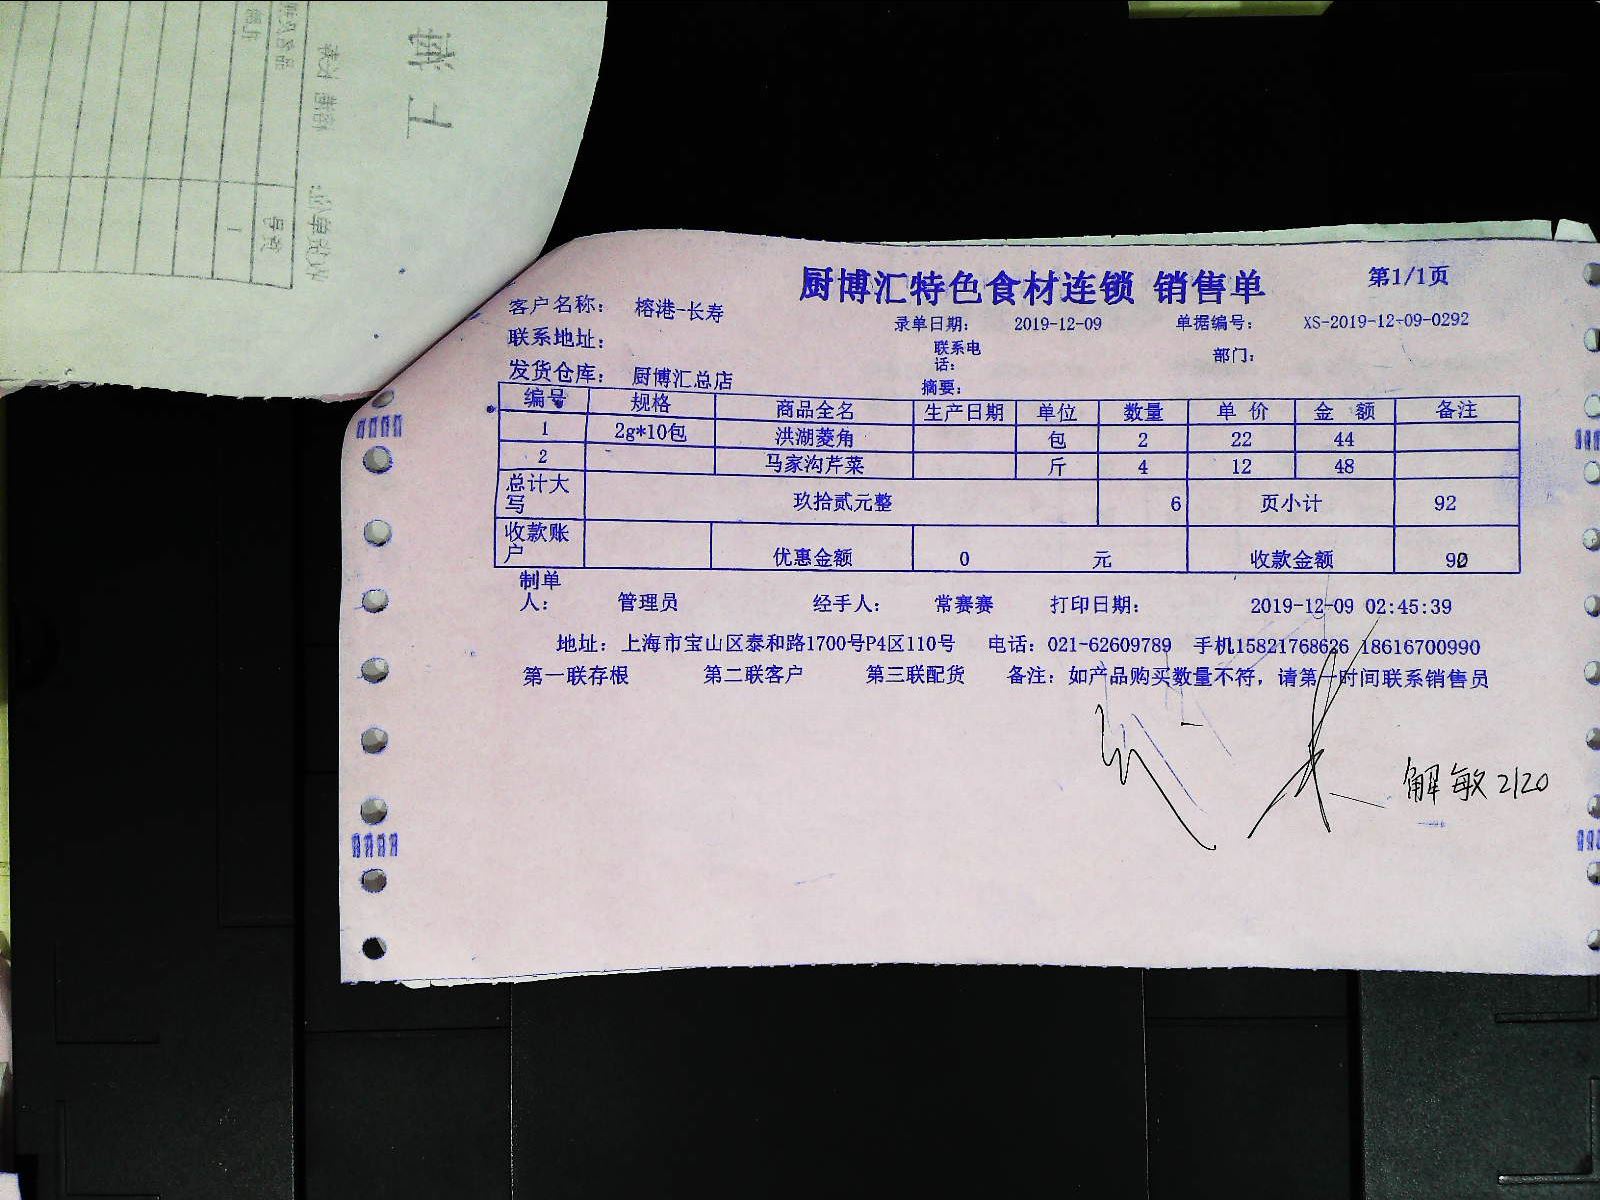 厨博汇特色食材连锁 销售单 第1/1页
客户名称: 榕港-长寿 录单日期: 2019-12-09 单据编号: XS-2019-12-09-0292
联系地址: 联系电话: 部门:
发货仓库: 厨博汇总店 摘要:
编号 规格 商品全名 生产日期 单位 数量 单 价 金 额 备注
1 2g*10包 洪湖菱角 包 2 22 44
2 马家沟芹菜 斤 4 12 48
总计大写 玖拾贰元整 6 页小计 92
收款账户 优惠金额 0 元 收款金额
制单人: 管理员 经手人: 常赛赛 打印日期: 2019-12-09 02:45:39
地址: 上海市宝山区泰和路1700号P4区110号 电话: 021-62609789 手机15821768626 18616700990
第一联存根 第二联客户 第三联配货 备注: 如产品购买数量不符, 请第一时间联系销售员
解敏 2120